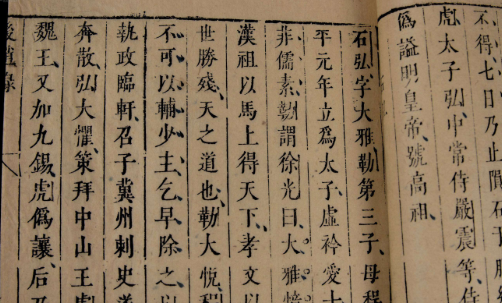 不得七日乃止
彪太子弘中常侍嚴震等
僞謚明皇帝號高祖
石弘字大雅勒第三子母程
平元年立爲太子虛衿愛士
非儒素勒謂徐光曰大雅愔
漢祖以馬上得天下孝文以
世勝殘天之道也勒大悅程
不可以輔少主乞早除之以
執政臨軒召子冀州刺史
齊散弘大懼策拜中山王虎
魏王又加九錫虎僞讓后